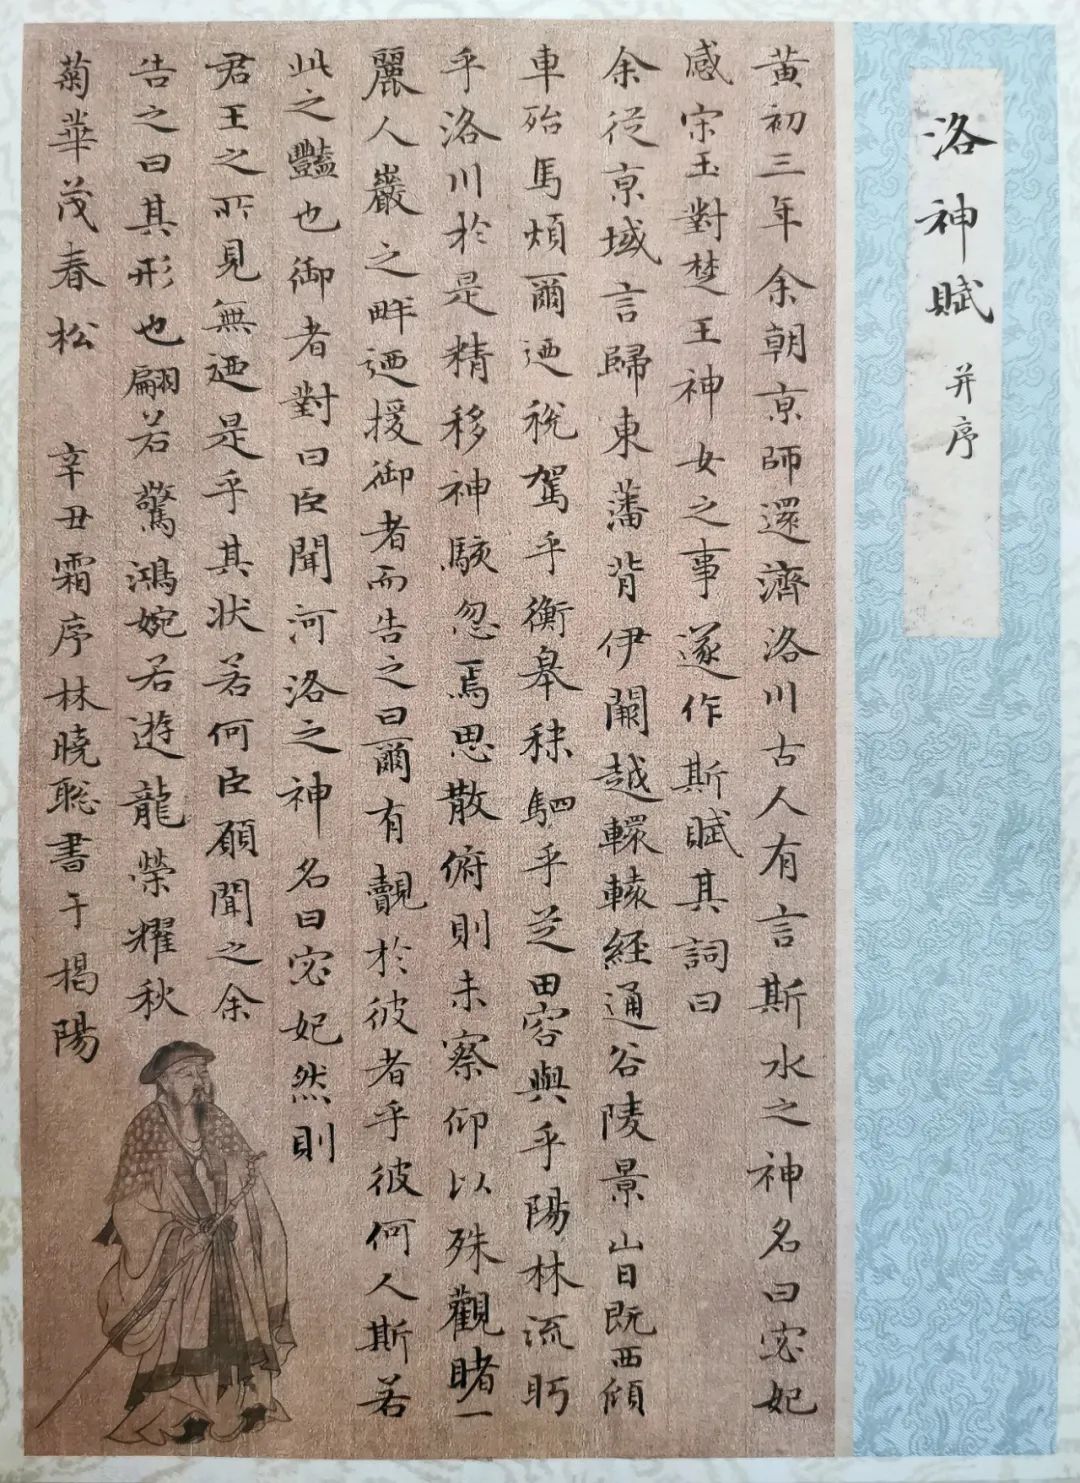 洛神賦 并序
黃初三年余朝京師還濟洛川古人有言斯水之神名曰宓妃
感宋玉對楚王神女之事遂作斯賦其詞曰
余從京域言歸東藩背伊闕越轘轅經通谷陵景山日既西傾
車殆馬煩爾迺稅駕乎蘅皋秣駟乎芝田容與乎陽林流眄
乎洛川於是精移神駭忽焉思散俯則未察仰以殊觀睹一
麗人巖之畔迺援御者而告之曰爾有覿於彼者乎彼何人斯若
此之豔也御者對曰臣聞河洛之神名曰宓妃然則
君王之所見無迺是乎其状若何臣願聞之余
告之曰其形也翩若驚鴻婉若遊龍榮耀秋
菊華茂春松 辛丑霜序林曉聡書于揭陽